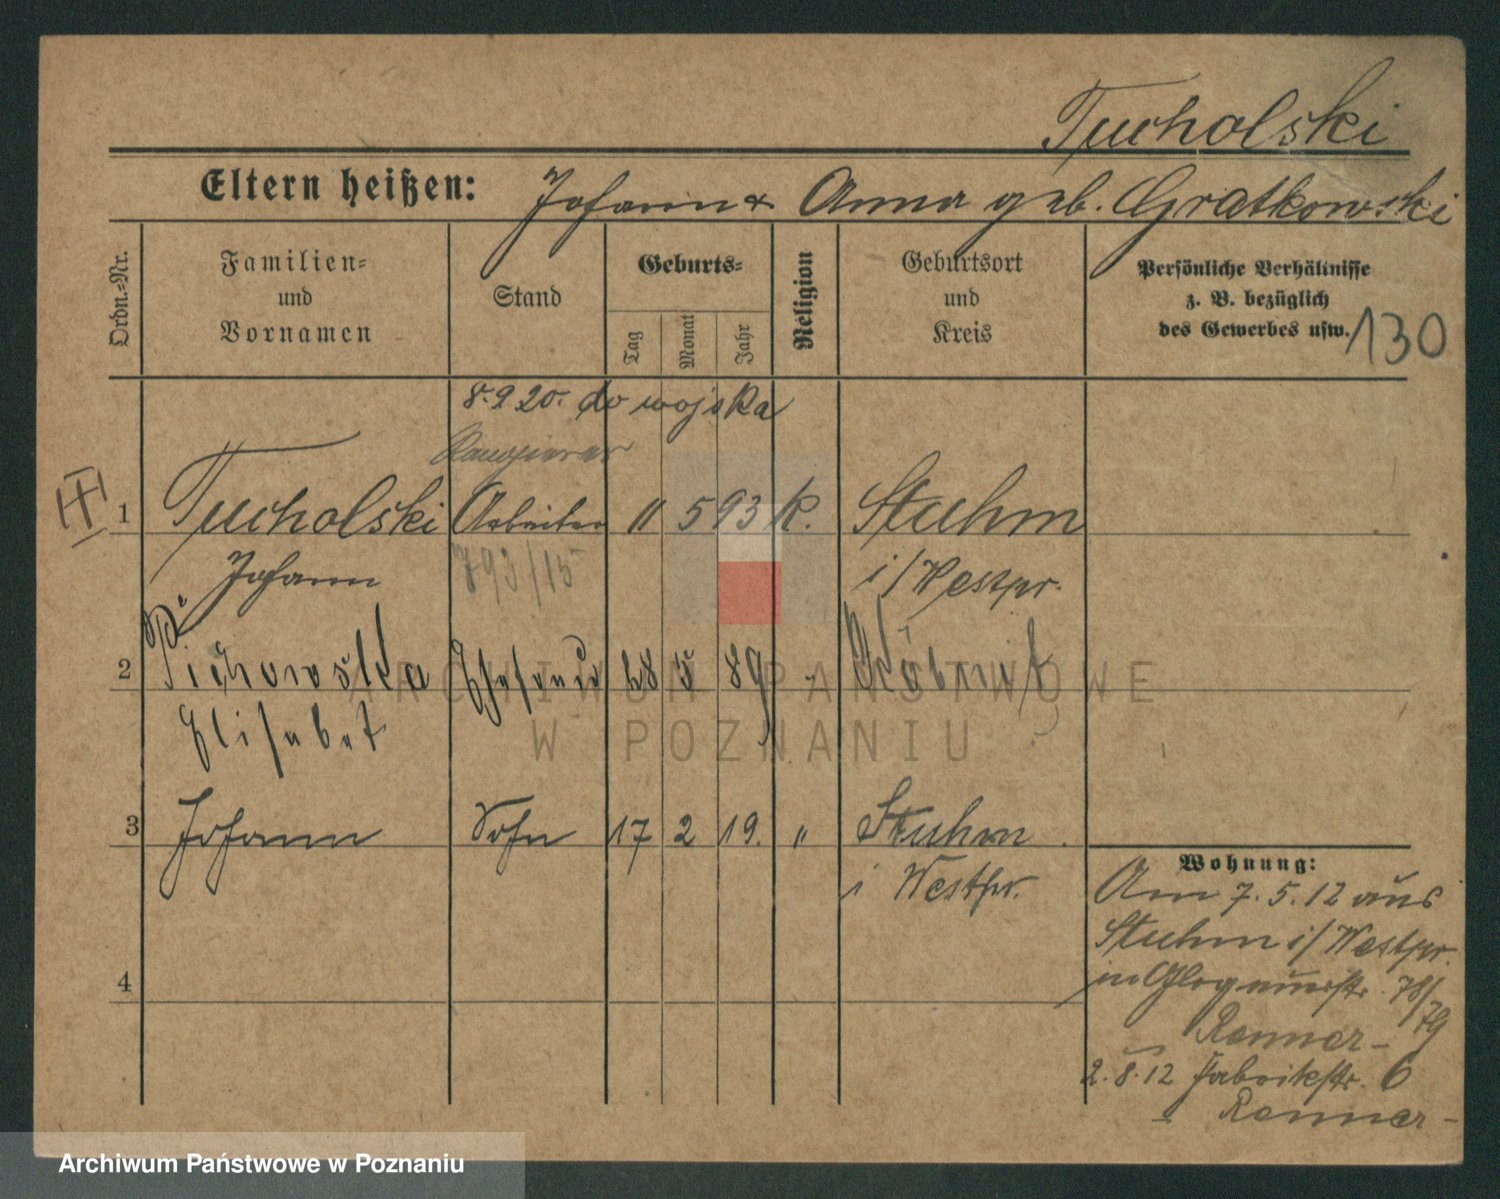 Tucholski
Eltern heißen: Johann & Anna geb. Gratkowski
Ordn.-Nr.
Familien- und Vornamen
Stand
Geburts-
Tag
Monat
Jahr
Religion
Geburtsort und Kreis
Persönliche Verhältnisse
z. B. bezüglich
des Gewerbes usw.
130
8.9.20. do wojska
1 Tucholski Arbeiter 11 5 93 k. Stuhm
Johann 793/15 i/Westpr.
2 Ehefrau 28 5 89 "
Elisabet
3 Johann Sohn 17 2 19. " Stuhm
i Westpr.
4
Wohnung:
Am 7.5.12 aus
Stuhm i/Westpr.
in Glogauerstr. 78/79
Renner-
2.8.12 Fabrikstr. 6
Renner-
ARCHIWUM PAŃSTWOWE
W POZNANIU
Archiwum Państwowe w Poznaniu